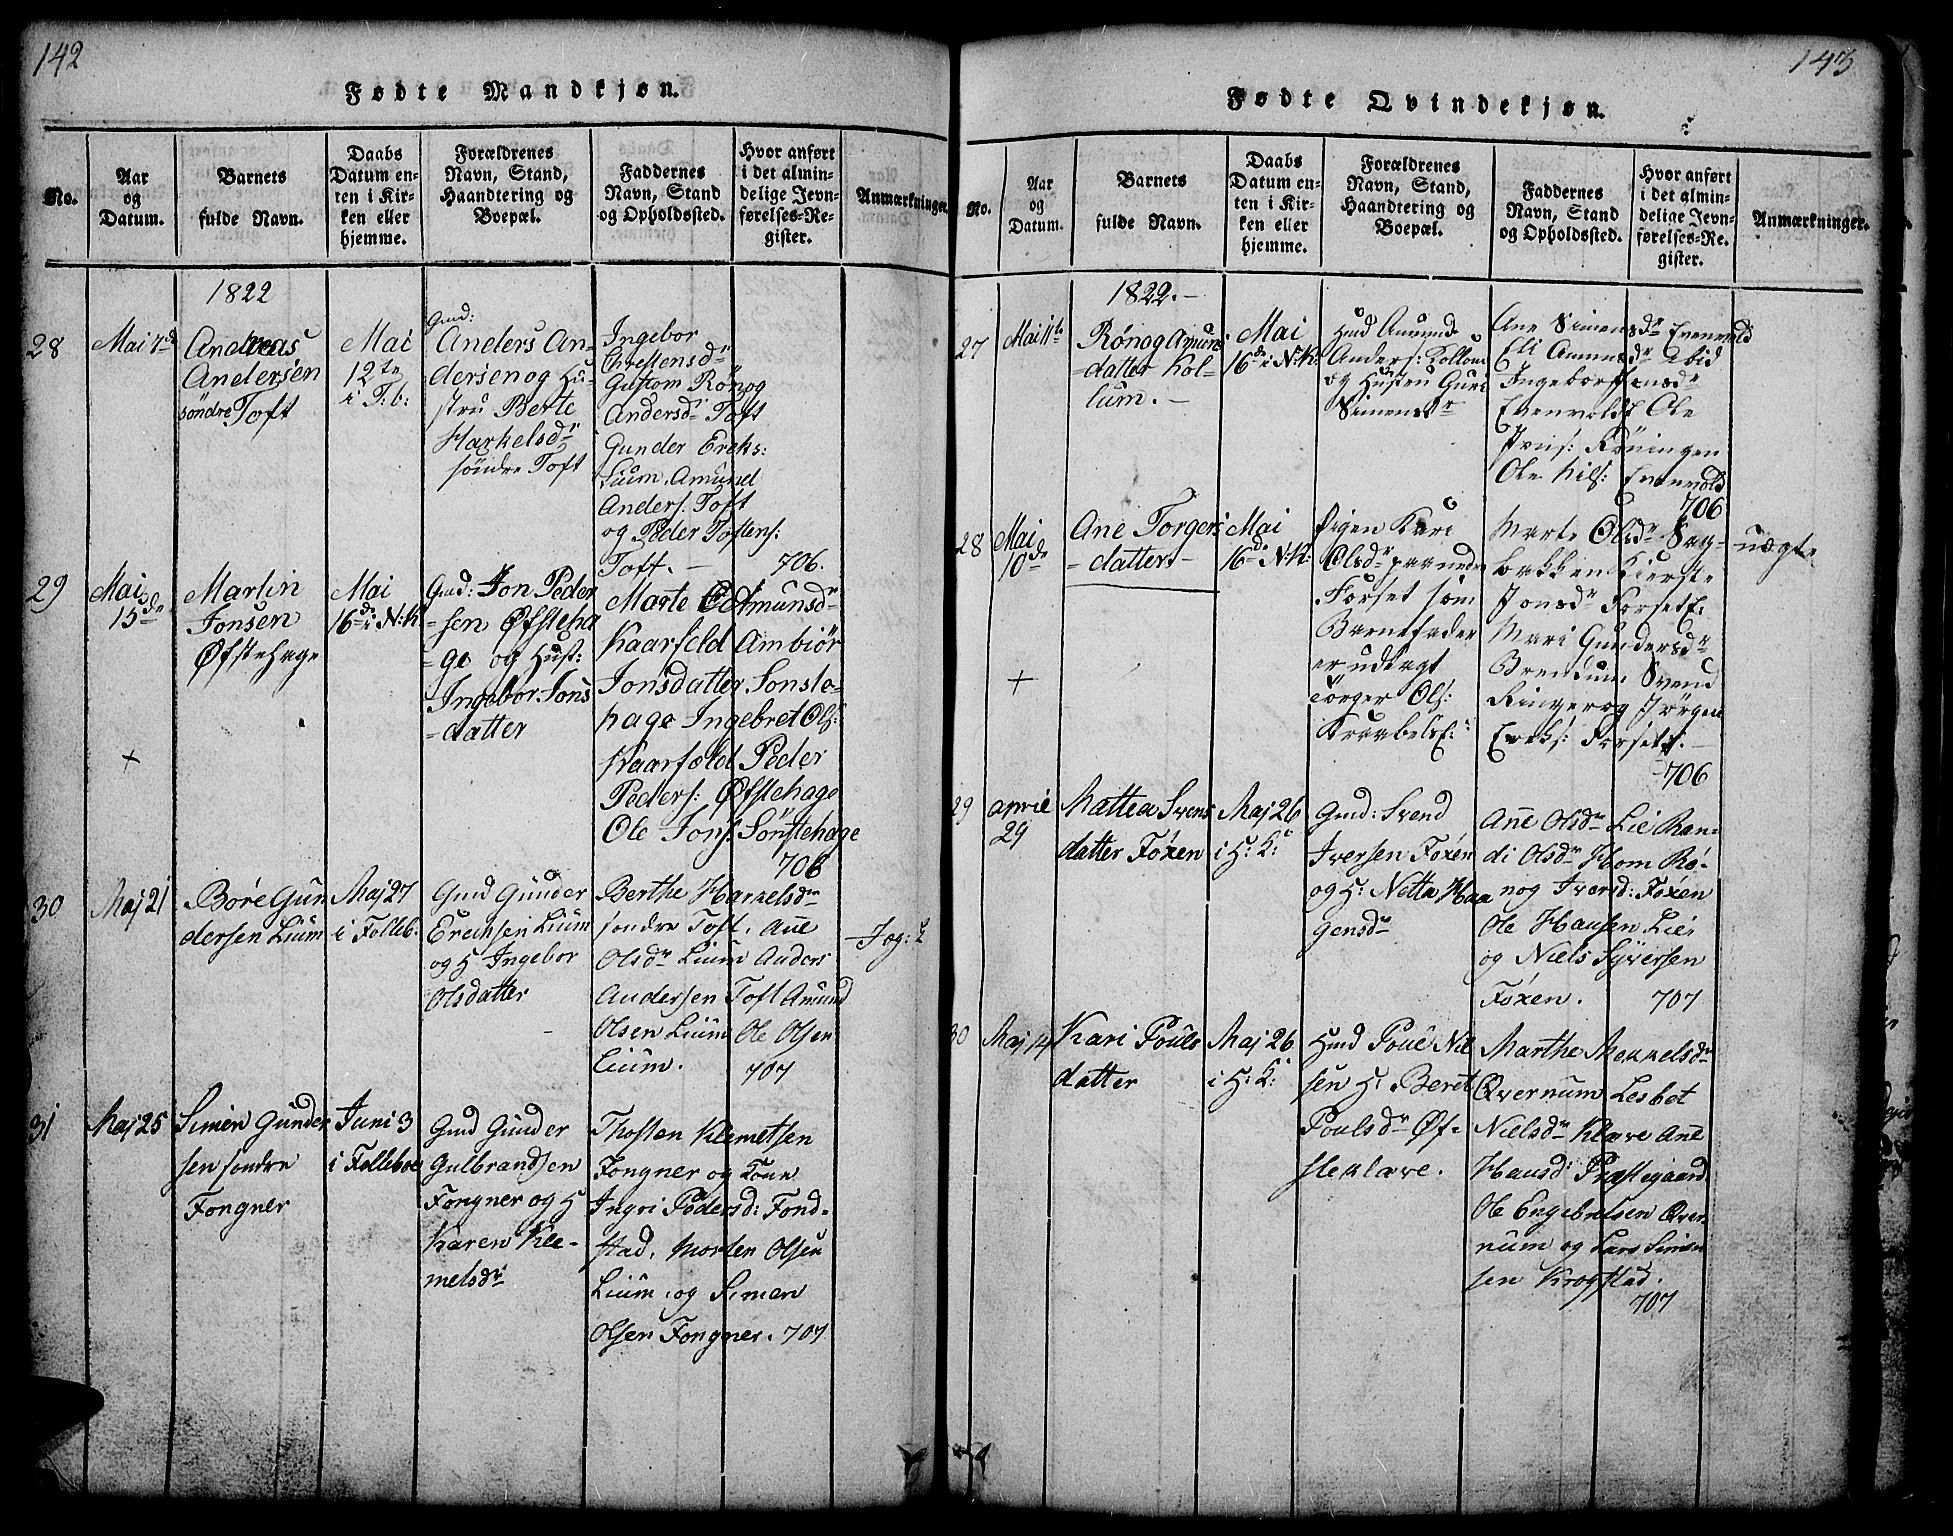 142
Fødte Mandkjøn.
No.
Aar
og
Datum.
Barnets
fulde Navn.
Daabs
Datum en-
ten i Kir-
ken eller
hjemme.
Forældrenes
Navn, Stand,
Haandtering og
Boepæl.
Faddernes
Navn, Stand
og Opholdssted.
Hvor anført
i det almin-
delige Jevn-
førelses-Re-
gister.
Anmærkninger.
1822
28
Mai 7de
Andreas
Andersen
søndre Toft
Mai
12te
i F:b:
Gmd:
Anders An-
dersen og Hu-
stru Berte
Harkelsdr
söndre Toft
Ingebor
Chrestensdr
Gustom Rönog
Andersdr Toft
Gunder Ereks:
Lium, Amund
Anders: Toft
og Peder Tostens:
Toft. — 706.
29
Mai
15de
+
Martin
Jonsen
Øfstehage
Mai
16de i N:K
Gmd: Jon Peder
-sen Øfsteha
-ge og Hust:
Ingebor Jons
-datter
Marte Amunsdr
Kaarfeld Ambiör
Jonsdatter Sonste-
hage Ingebret Ols:
Kaarfeld Peder
Peders: Øfstehage
Ole Jons: Sönstehage
706
30
Maj 21
Böre Gun
dersen Lium
Maj 27
i Folleb.
Gmd Gunder
Erichsen Lium
og H Ingebor
Olsdatter
Berthe Harkelsdr
söndre Toft, Ane
Olsdr Lium Anders
Andersen Toft Amund
Olsen Lium Ole Olsen
Lium. 707
31
Maj 25
Simen Gunder
sen søndre
Fongner
Juni 3
i Folleboe
Gmd Gunder
Gulbrandsen
Fongner og H
Karen Kle-
metsdr
Thosten Klemetsen
Fongner og Kone
Ingri Pedersd: Fond-
stad, Morten Olsen
Lium, og Simen
Olsen Fongner. 707
143
Fødte Qvindekjøn.
No.
Aar
og
Datum.
Barnets
fulde Navn.
Daabs
Datum en-
ten i Kir-
ken eller
hjemme.
Forældrenes
Navn, Stand,
Haandtering og
Boepæl.
Faddernes
Navn, Stand
og Opholdssted.
Hvor anført
i det almin-
delige Jevn-
førelses-Re-
gister.
Anmærkninger.
1822.—
27
Mai 11te
Rönog Amuns
-datter Kol-
lum.—
Mai
16de i N:K:
Hmd Amund
Anders: Kollum
og Hustru Guri
Simensdr
Ane Simensdr Evenvold
Eli Amunsdr ibid
Ingebor Jensdr
Evenvold Ole
Jens: Röningen
Ole Nils: Evenvold
706
28
Mai
10de
+
Ane Torgers
-datter—
Mai
16de N:K:
Pigen Kari
Olsdr
Forset som
Barnefader
er udlagt
Törger Ols:
Marte Olsdr Bag-
bakken Kierste
Jonsdr Forset
Mari Gundersdr
Brendum Svend
Ringer og Jörgen
Ereks: Forset.—
706
uægte
29
April
29
Mattea Svens
datter Foxen
Maj 26
i H: K:
Gmd: Svend
Iversen Foxen
og H: Netta Haa
gensdr
Ane Olsdr Lie Ran-
di Olsdr Hom Rö-
nog Iversd: Foxen
Ole Hansen Lie,
og Niels Syversen
Foxen. 707
30
Maj 14
Kari Pouls
datter
Maj 26
i H: K:
Hmd Poul Niel
sen H: Beret
Poulsdr Øf-
steklæve.
Marthe Mekkelsdr
Qvernum Lesbet
Nielsdr Klæve Ane
Hansd: Præstegaard
Ole Engebretsen Qver-
num og Lars Simen
sen Krogstad.
707